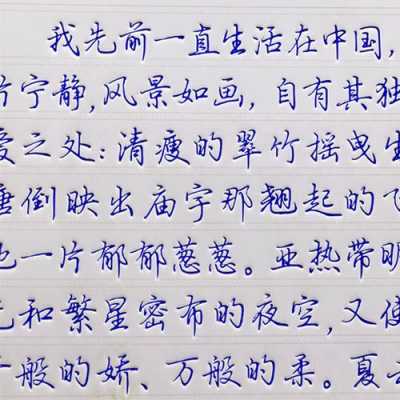 我先前一直生活在中国,
宁静,风景如画,自有其独
之处:清瘦的翠竹摇曳生
倒映出庙宇那翘起的飞
一片郁郁葱葱。亚热带明
和繁星密布的夜空,又使
般的娇、万般的柔。夏